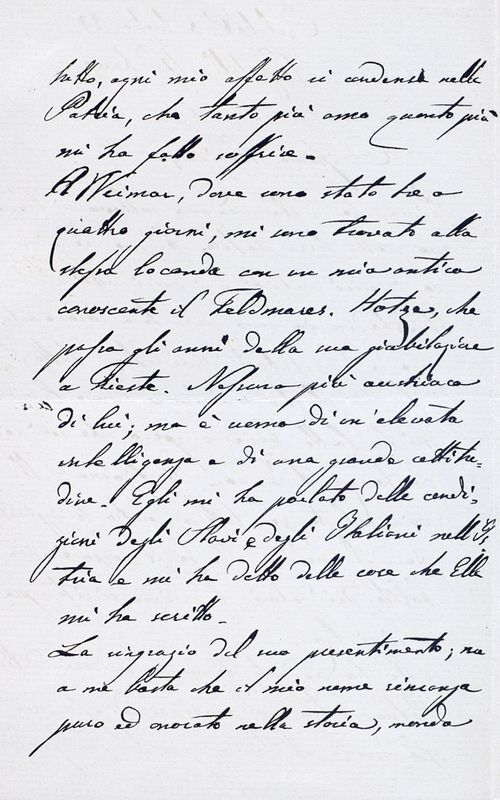 tutto, ogni mio affetto si condensa nella
Patria, che tanto più amo quanto più
mi ha fatto soffrire.
A Weimar, dove sono stato tre o
quattro giorni, mi sono trovato alla
stessa locanda con un mio antico
conoscente il Feldmares. Hotze, che
passa gli anni della sua giubilazione
a Trieste. Nessuno più austriaco
di lui; ma è uomo di un'elevata
intelligenza e di una grande rettitu-
dine. Egli mi ha parlato delle condi-
zioni degli Slavi e degli Italiani nell'Is-
tria e mi ha detto delle cose che Elle
mi ha scritto.
La ringrazio del suo presentimento; ma
a me basta che il mio nome rimanga
puro ed onorato nella storia,